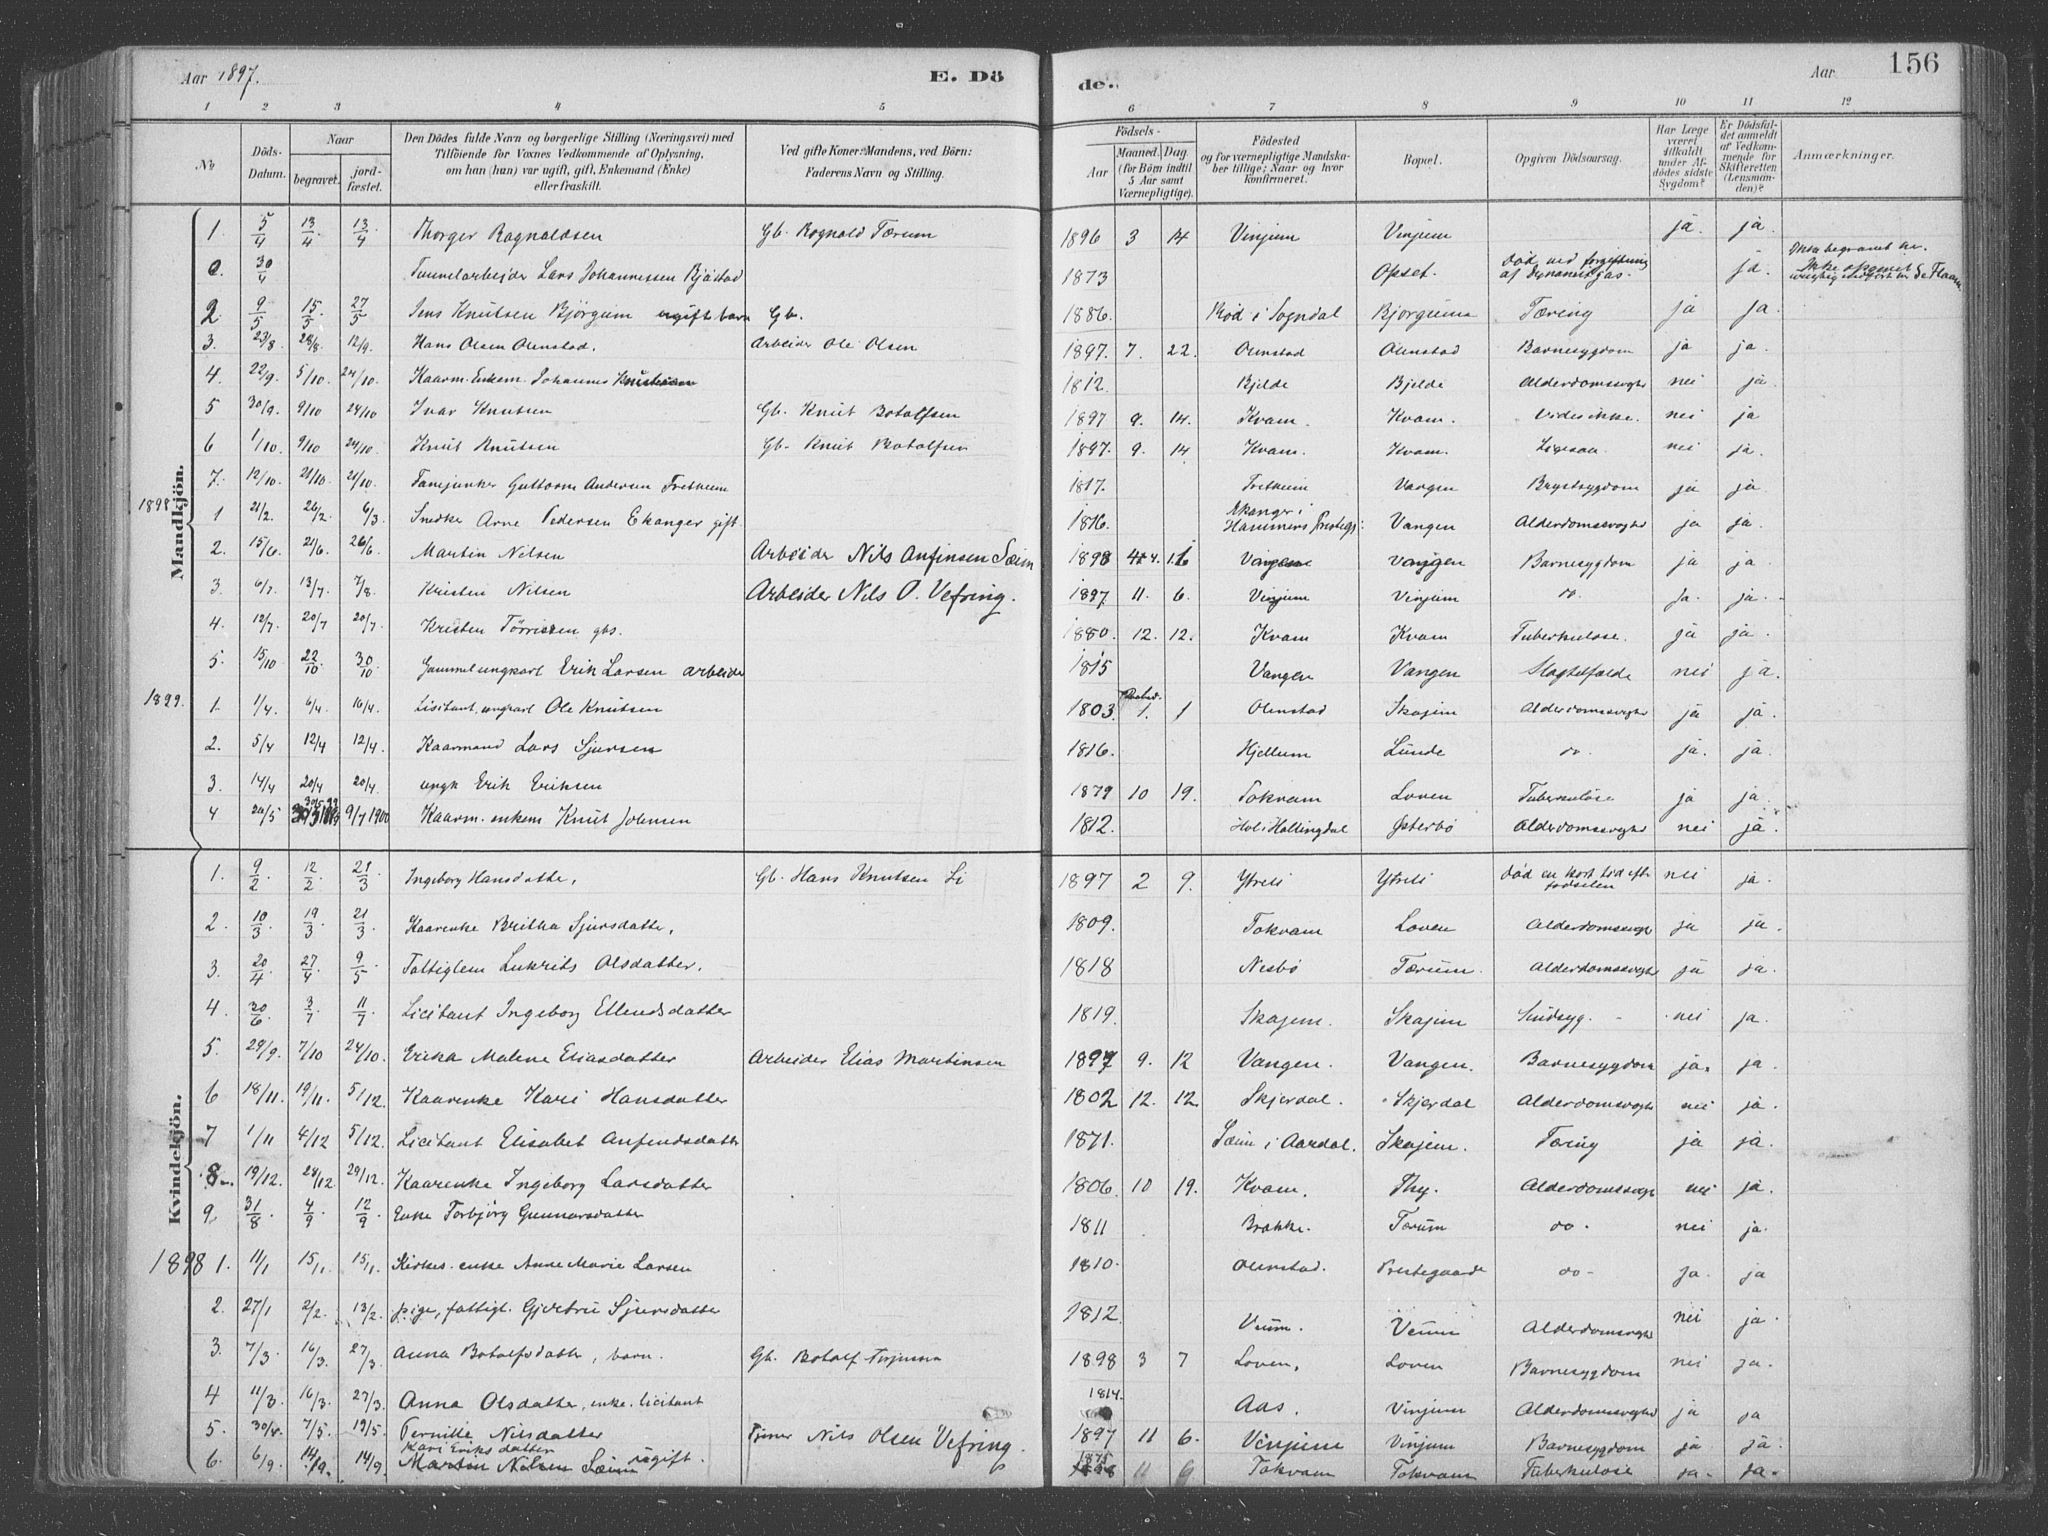 Aar 1897. E. Dö de. Aar 156
1 2 3 4 5 6 7 8 9 10 11 12
No. Döds-Datum. Naar begravet. jordfæstet. Den Dödes fulde Navn og borgerlige Stilling (Næringsvei) med Tilföiende for Voxnes Vedkommende af Oplysning, om han (hun) var ugift, gift, Enkemand (Enke) eller fraskilt. Ved gifte Koner: Mandens, ved Börn: Faderens Navn og Stilling. Födsels- Aar Maaned. Dag. (for Börn indtil 5 Aar samt Værnepligtige). Födested og for værnepligtige Mandskaber tillige; Naar og hvor konfirmeret. Bopæl. Opgiven Dödsaarsag. Har Læge været tilkaldt under Afdödes sidste Sygdom? Er Dödsfaldet anmeldt af Vedkommende for Skifteretten (Lensmanden)? Anmærkninger.
Mandkjön.
1. 5/4 13/4 13/4 Thorger Ragnaldsen Gb. Rognald Tærum 1896 3 14 Vinjum Vinjum ja. ja.
0. 30/4 Tunnelarbejder Lars Johannessen Bjåstad 1873 Opset. Død ved forgiftning af dynamitgas. ja.
2 9/5 15/5 27/5 Jens Knutsen Bjørgum ugift barn Gb. 1886. Rød i Sogndal Bjorgum Tæring ja ja.
3. 23/8 28/8 12/9. Hans Olsen Olnstad. Arbeider Ole Olsen 1897. 7. 22. Olnstad Olnstad Barnesygdom ja ja.
4. 22/9. 5/10. 24/10. Kaarm. Enkem. Johannes Knutsen 1812. Bjelde Bjelde Alderdomssvaghed nei ja.
5 30/9. 9/10 24/10 Ivar Knutsen Gb. Knut Botolfsen 1897 9. 14. Kvam. Kvam. Vides ikke. nei ja
6 1/10. 9/10 24/10. Knut Knutsen Gb. Knut Botolfsen 1897. 9. 14 Kvam. Kvam. Ligesaa nei ja.
7. 12/10. 21/10. 21/10. Fanejunker Guttorm Andersen Fretheim 1817. Fretheim Vangen Brystsygdom ja ja.
1898 1 21/2. 26/2. 6/3 Snedker Arne Pedersen Ekanger gift. 1816. Ekanger i Hammers Prestegj: Vangen Alderdomssvaghed ja ja
2. 15/6 21/6. 26/6. Martin Nilsen Arbeider Nils Anfinsen Sæim 1898 4. 16 Vangen Vangen Barnesygdom ja ja
3. 6/7. 13/7. 7/8. Kristen Nilsen Arbeider Nils O. Vefring. 1897. 11. 6. Vinjum Vinjum do. ja. ja.
4. 12/7. 20/7 20/7 Kristen Tørrissen gbs. 1880. 12. 12. Kvam Kvam Tuberkulose. ja ja.
5. 15/10 22/10 30/10. Gammel ungkarl Erik Larsen arbeider 1815 Vangen Vangen Slagtilfælde nei ja.
1899. 1. 1/4. 6/4. 16/4. Licitant, ungkarl Ole Knutsen 1803. 1. 1 Olnstad Skajem Alderdomssvaghed ja ja.
2. 5/4 12/4 12/4. Kaarmand Lars Sjursen 1816. Hjellum Lunde do. ja. ja.
3 14/4 20/4 20/4. ungk Erik Eriksen 1879 10 19. Tokvam Loven Tuberkulose ja ja.
4 24/5 9/7 1900 Kaarm. enkem Knut Johnsen 1812. Hol i Hallingdal Østerbø Alderdomssvaghed nei ja.
Kvindekjön.
1. 9/2. 12/2. 21/3 Ingeborg Hansdatter, Gb. Hans Knutsen Li 1897 2 9. Ytreli Ytreli Død en kort tid efter fødselen nei ja.
2. 10/3 19/3 21/3. Kaarenke Britha Sjursdatter, 1809. Tokvam Loven Alderdomssvaghed ja ja.
3. 20/4 27/4 9/5 Fattiglem Lukrits Olsdatter. 1818 Nesbø Tærum. Alderdomssvaghed ja ja.
4. 30/6. 3/7 11/7. Licitant Ingeborg Ellendsdatter 1819. Skajem. Skajem Sindsyg. nei ja.
5. 29/9. 7/10 24/10. Erika Malene Eliasdatter Arbeider Elias Martinsen 1897 9. 12 Vangen. Vangen. Barnesygdom ja. ja
6 18/11. 19/11. 5/12. Kaarenke Kari Hansdatter 1802 12. 12. Skjerdal. Skjerdal Alderdomssvaghed nei ja.
7 1/11 4/12 5/12. Licitant Elisabet Anfindsdatter 1871. Sæim i Aardal. Skajem. Tæring ja ja.
8. 19/12. 28/12 29/12. Kaarenke Ingeborg Larsdatter 1806. 10 19. Kvam. Thy. Alderdomssvaghed nei ja.
9. 31/8 4/9 12/9. Enke Torbjørg Gunnarsdatter 1811 Brække. Tærum do. nei ja.
1898 1. 11/1 15/1. 15/1. Kirkes. enke Anne Marie Larsen 1810. Olnstad. Prestegaard do - ja. ja
2. 27/1 2/2. 13/2. pige, fattigl. Gjertru Sjursdatter 1812. Veum. Veum Alderdomssvaghed nei ja.
3. 7/3 16/3. 27/3. Anna Botolfsdatter, barn. Gb. Botolf Torjussen 1898 3 7 Loven, Loven Barnesygdom nei ja.
4 11/3. 16/3. 27/3. Anna Olsdatter, enke. licitant 1814. Aas. Vinjum Alderdomssvaghed ja ja
5. 30/4. 7/5. 19/5. Pernille Nilsdatter Nils Olsen Vefring. 1897 11 6. Vinjum Vinjum Barnesygdom ja ja.
6. 6/9. 14/9. 14/9. Kari Eriksdatter ugift. Martin Nilsen Sæim 1875 11 6 Tokvam Tokvam Tuberkulose ja. ja.